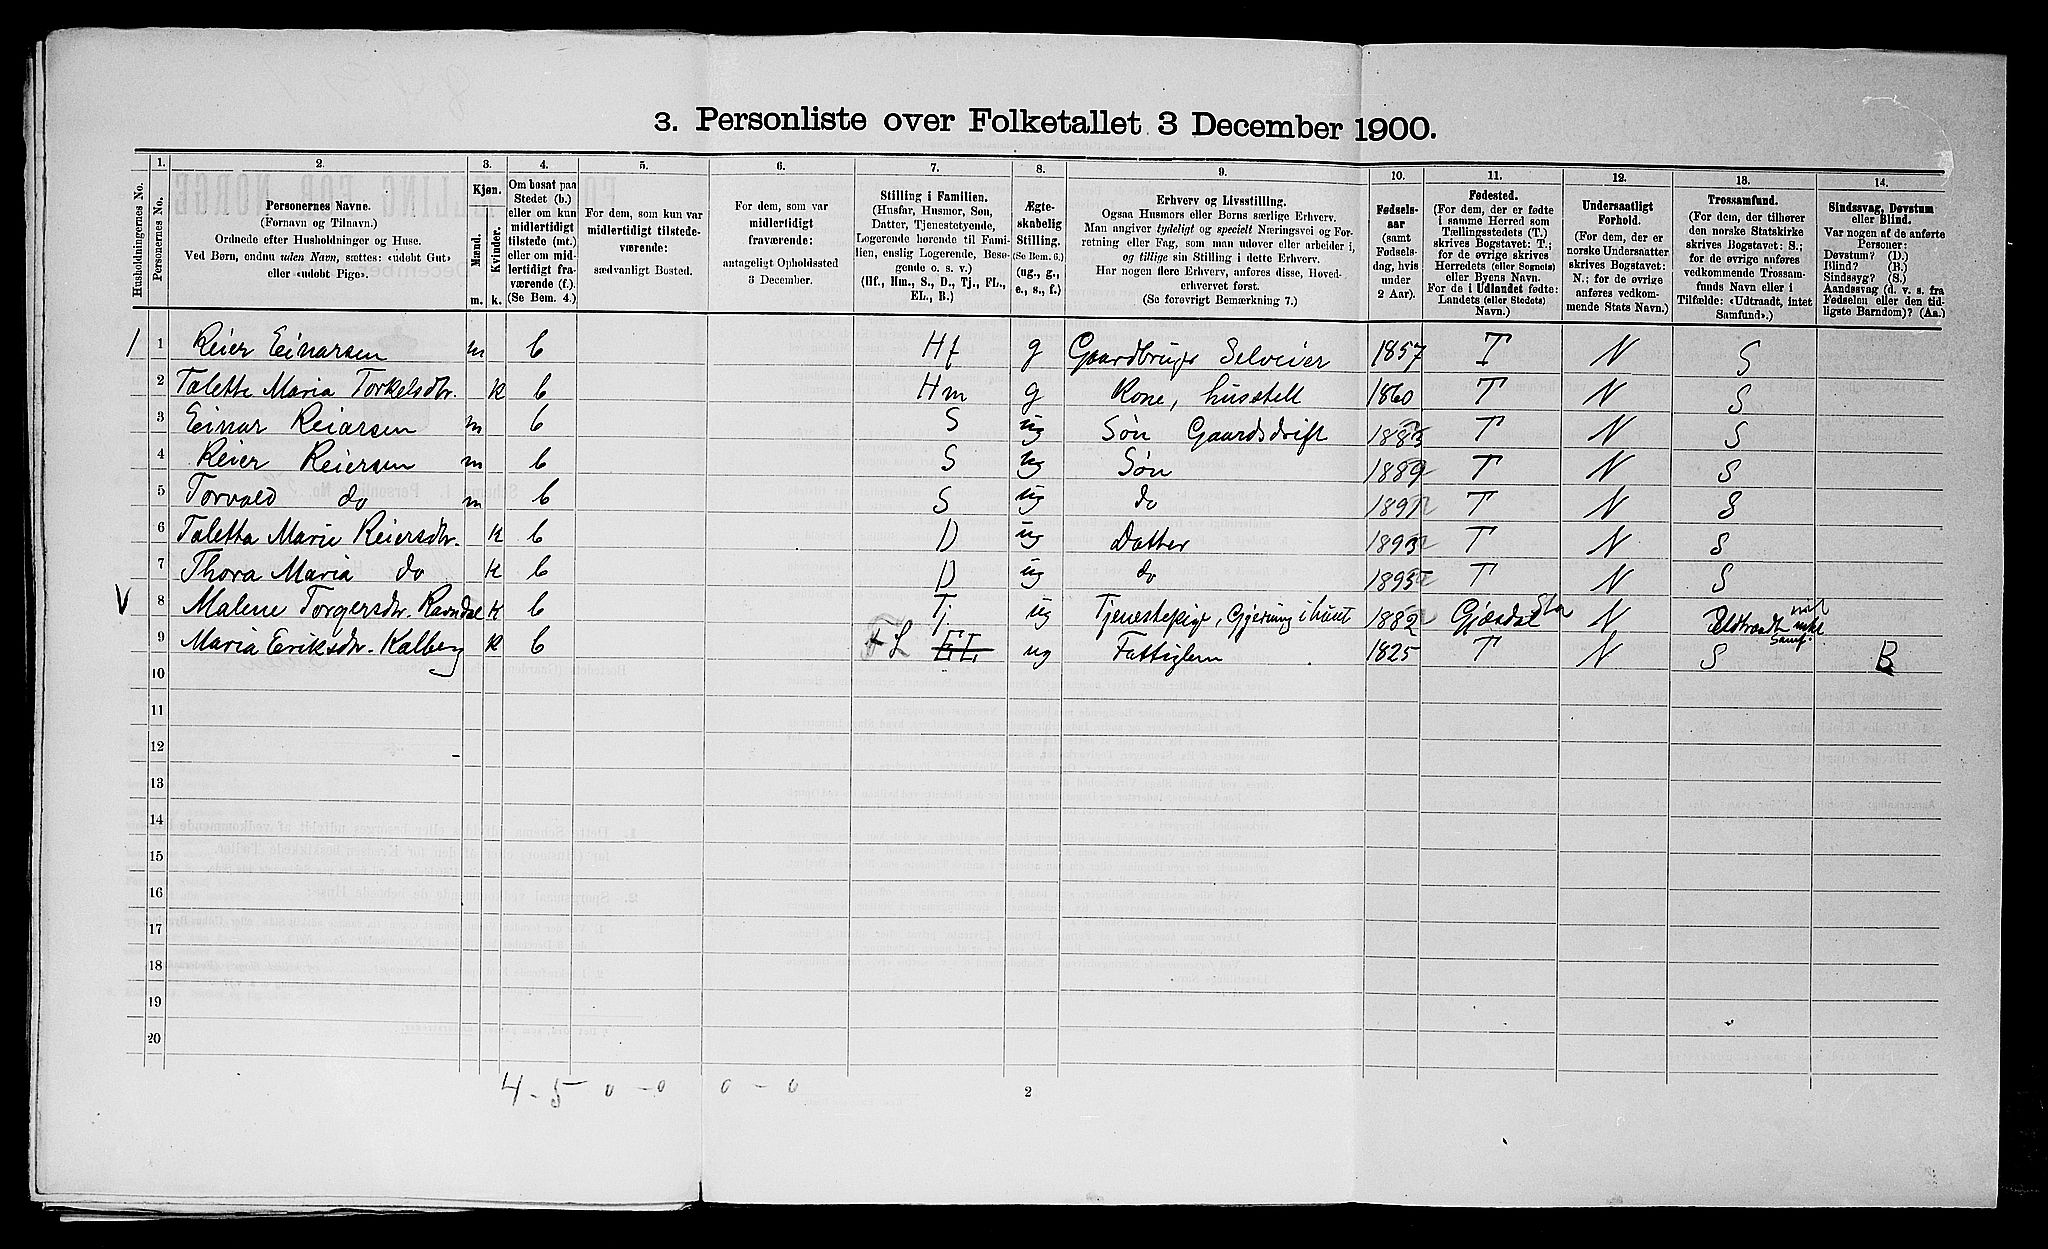 3. Personliste over Folketallet 3 December 1900.
1. 2. 3. 4. 5. 6. 7. 8. 9. 10. 11. 12. 13. 14.
Husholdningernes No.
Personernes No.
Personernes Navne.
(Fornavn og Tilnavn.)
Ordnede efter Husholdninger og Huse.
Ved Børn, endnu uden Navn, sættes: «udøbt Gut»
eller «udøbt Pige».
Kjøn.
Mænd.
Kvinder.
m. k.
Om bosat paa
Stedet (b.)
eller om kun
midlertidigt
tilstede (mt.)
eller om mid-
lertidigt fra-
værende (f.).
(Se Bem. 4.)
For dem, som kun var
midlertidigt tilstede-
værende:
sædvanligt Bosted.
For dem, som var
midlertidigt
fraværende:
antageligt Opholdssted
3 December.
Stilling i Familien.
(Husfar, Husmor, Søn,
Datter, Tjenestetyende,
Logerende hørende til Fami-
lien, enslig Logerende, Besø-
gende o. s. v.)
(Hf., Hm., S., D., Tj., FL.,
EL., B.)
Ægte-
skabelig
Stilling.
(Se Bem. 6.)
(ug., g.,
e., s., f.)
Erhverv og Livsstilling.
Ogsaa Husmors eller Børns særlige Erhverv.
Man angiver tydeligt og specielt Næringsvei og For-
retning eller Fag, som man udøver eller arbeider i,
og tillige sin Stilling i dette Erhverv.
Har nogen flere Erhverv, anføres disse, Hoved-
erhvervet først.
(Se forøvrigt Bemærkning 7.)
Fødsels-
aar
(samt
Fødsels-
dag, hvis
under
2 Aar).
Fødested.
(For dem, der er fødte
i samme Herred som
Tællingsstedets (T.)
skrives Bogstavet: T.;
for de øvrige skrives
Herredets (eller Sognets)
eller Byens Navn.
For de i Udlandet fødte:
Landets (eller Stedets)
Navn.)
Undersaatligt
Forhold.
(For dem, der er
norske Undersaatter
skrives Bogstavet:
N.; for de øvrige
anføres vedkom-
mende Stats Navn.)
Trossamfund.
(For dem, der tilhører
den norske Statskirke
skrives Bogstavet: S.;
for de øvrige anføres
vedkommende Trossam-
funds Navn eller i
Tilfælde: «Udtraadt, intet
Samfund».)
Sindssvag, Døvstum
eller Blind.
Var nogen af de anførte
Personer:
Døvstum? (D.)
Blind? (B.)
Sindssyg? (S.)
Aandssvag (d. v. s. fra
Fødselen eller den tid-
ligste Barndom)? (Aa.)
1 1 Reier Einarsen m b Hf g Gaardbruger Selveier 1857 T N S
2 Taletta Maria Torkelsdtr. k b Hm g Kone, husstell 1860 T N S
3 Einar Reiarsen m b S ug Søn Gaardsdrift 1885 T N S
4 Reier Reiersen m b S ug Søn 1889 T N S
5 Torvald do m b S ug do 1891 T N S
6 Taletta Marie Reiersdtr. k b D ug Datter 1893 T N S
7 Thora Maria do k b D ug do 1895 T N S
V 8 Malene Torgersdtr. Ravndal k b Tj ug Tjenestepige, Gjerning i huset 1882 Gjæsdal N Udtraadt
9 Maria Eriksdtr. Kalberg k b FL EL. ug Fattiglem 1825 T N S B
10
11
12
13
14
15
16
17
18
19
20
4 - 5 0 - 0 0 - 0
2